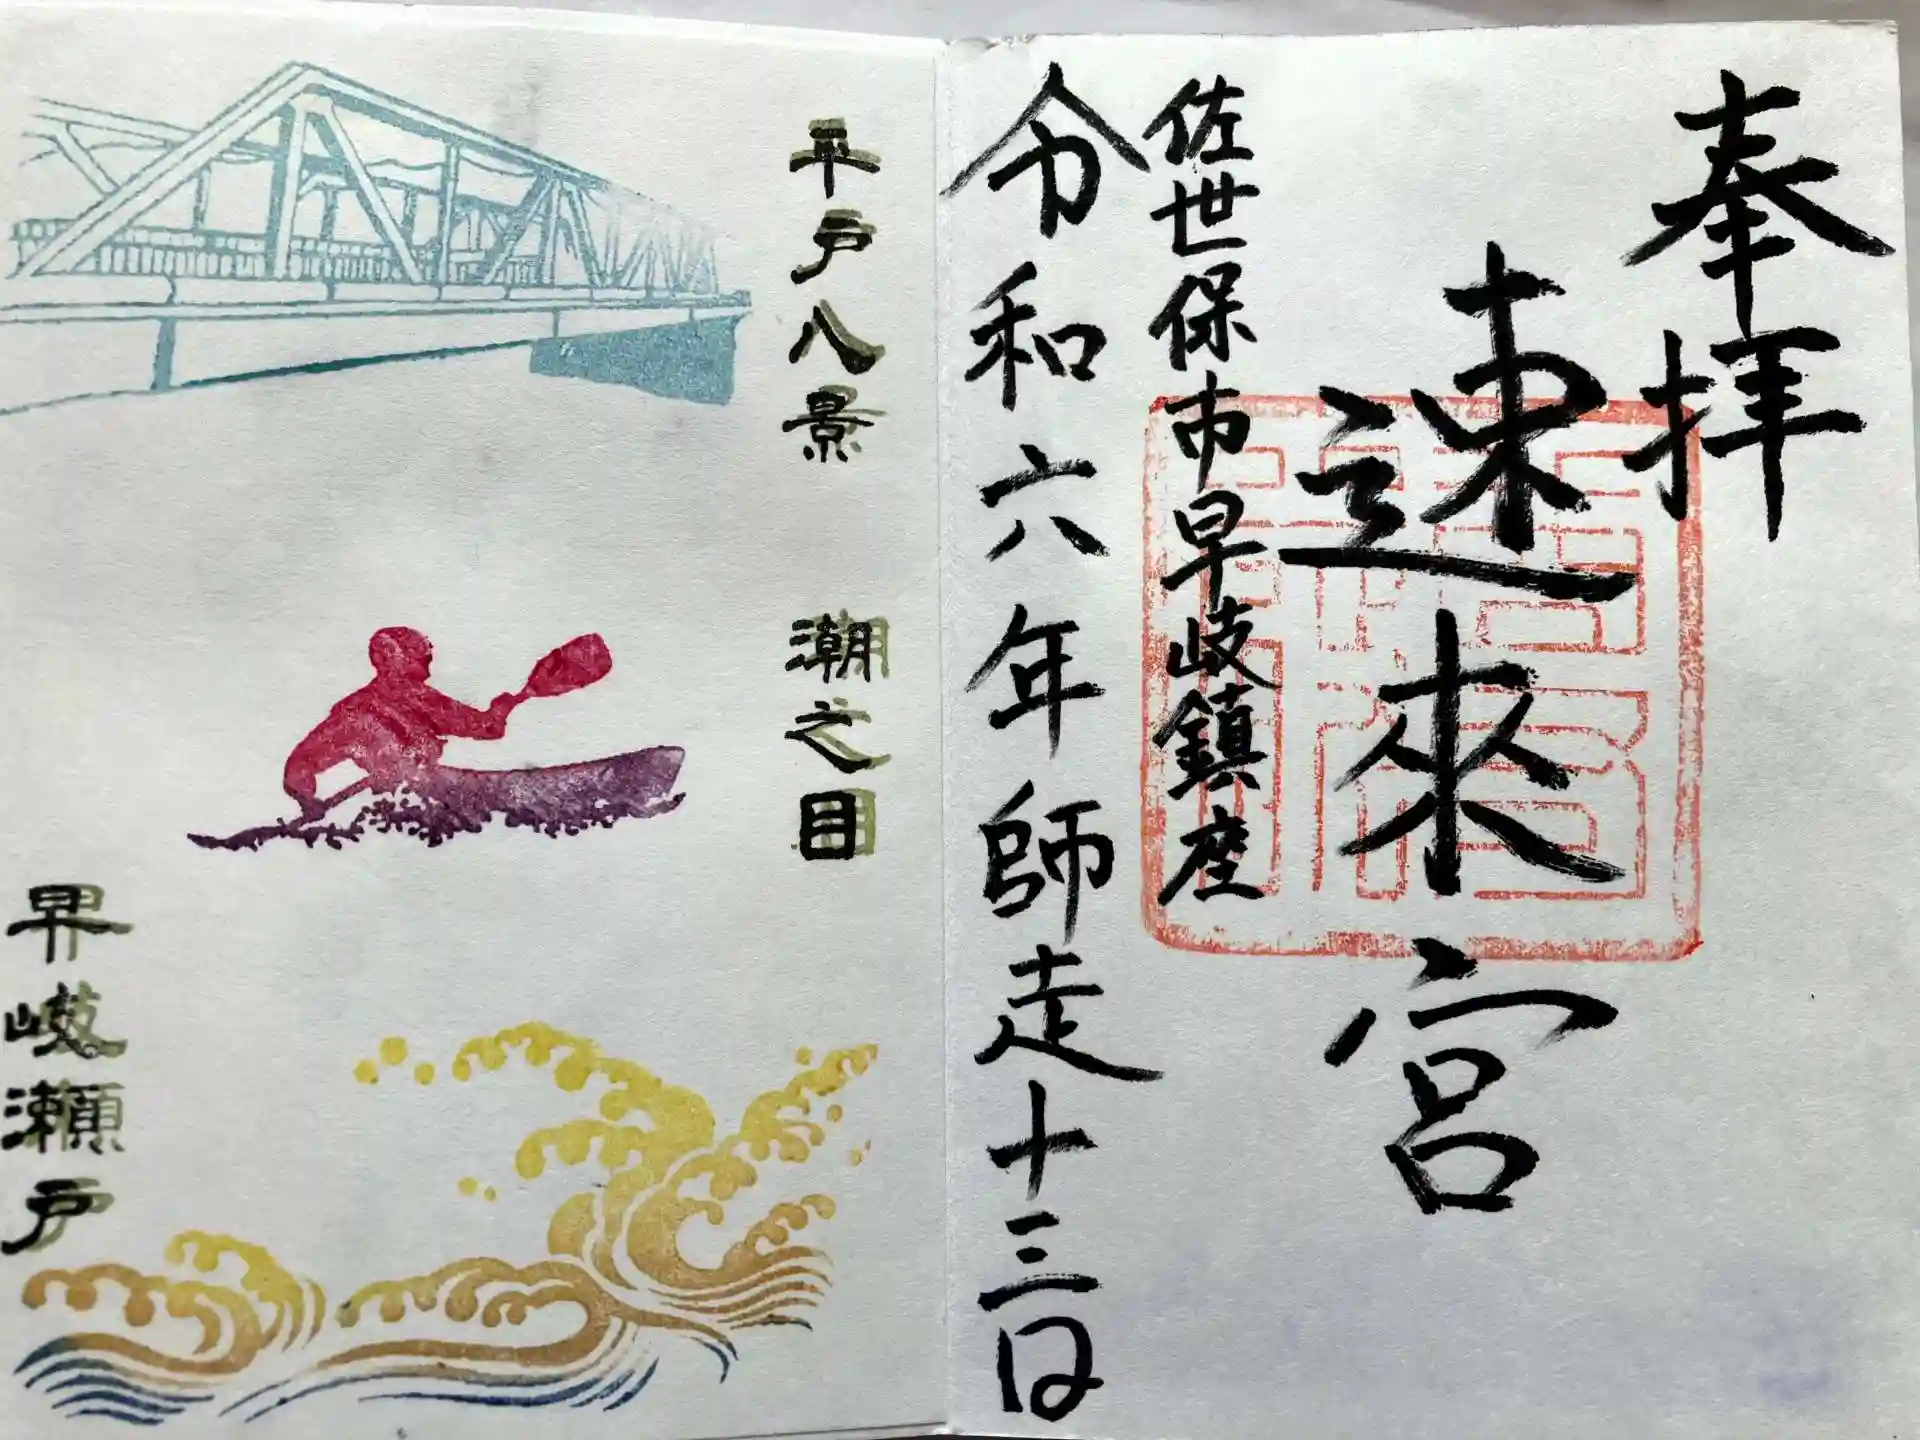 奉拝
速来宮
佐世保市早岐鎮座
令和六年師走十三日
平戸八景
潮之目
早岐瀬戸